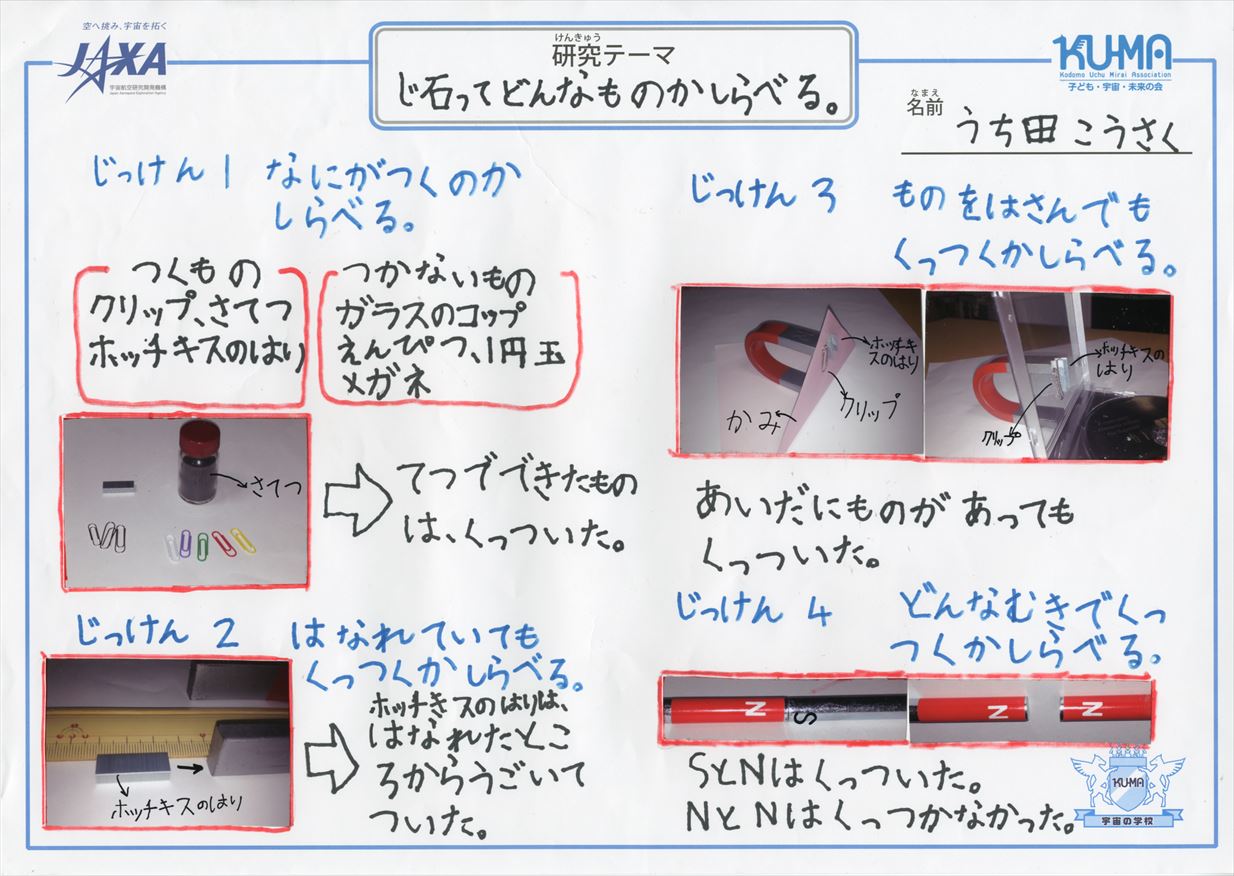 空へ挑み、宇宙を拓く
JAXA
宇宙航空研究開発機構
Japan Aerospace Exploration Agency
けんきゅう
研究テーマ
じ石ってどんなものかしらべる。
KU-MA
Kodomo Uchu Mirai Association
子ども・宇宙・未来の会
なまえ
名前
うち田 こうさく
じっけん 1 なにがつくのか
しらべる。
つくもの
クリップ、さてつ
ホッチキスのはり
つかないもの
ガラスのコップ
えんぴつ、1円玉
メガネ
さてつ
てつでできたもの
は、くっついた。
じっけん 2 はなれていても
くっつくかしらべる。
ホッチキスのはり
ホッチきスのはりは、
はなれたとこ
ろからうごいて
ついた。
じっけん 3 ものをはさんでも
くっつくかしらべる。
ホッチキ
スのはり
クリップ
かみ
ホッチキスの
はり
クリップ
あいだにものがあっても
くっついた。
じっけん 4 どんなむきでくっ
つくかしらべる。
N
S
N
N
SとNはくっついた。
NとNはくっつかなかった。
KU-MA
宇宙の学校